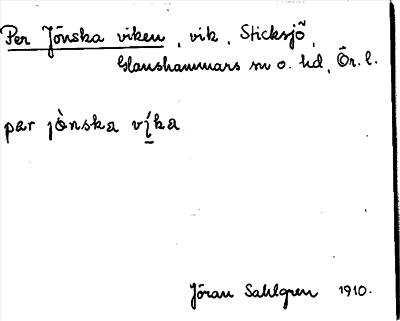 Per Jönska viken, vik, Sticksjö,
Glanshammars sn o. hd, Ör. l.
pær jònska víka
Jöran Sahlgren 1910.